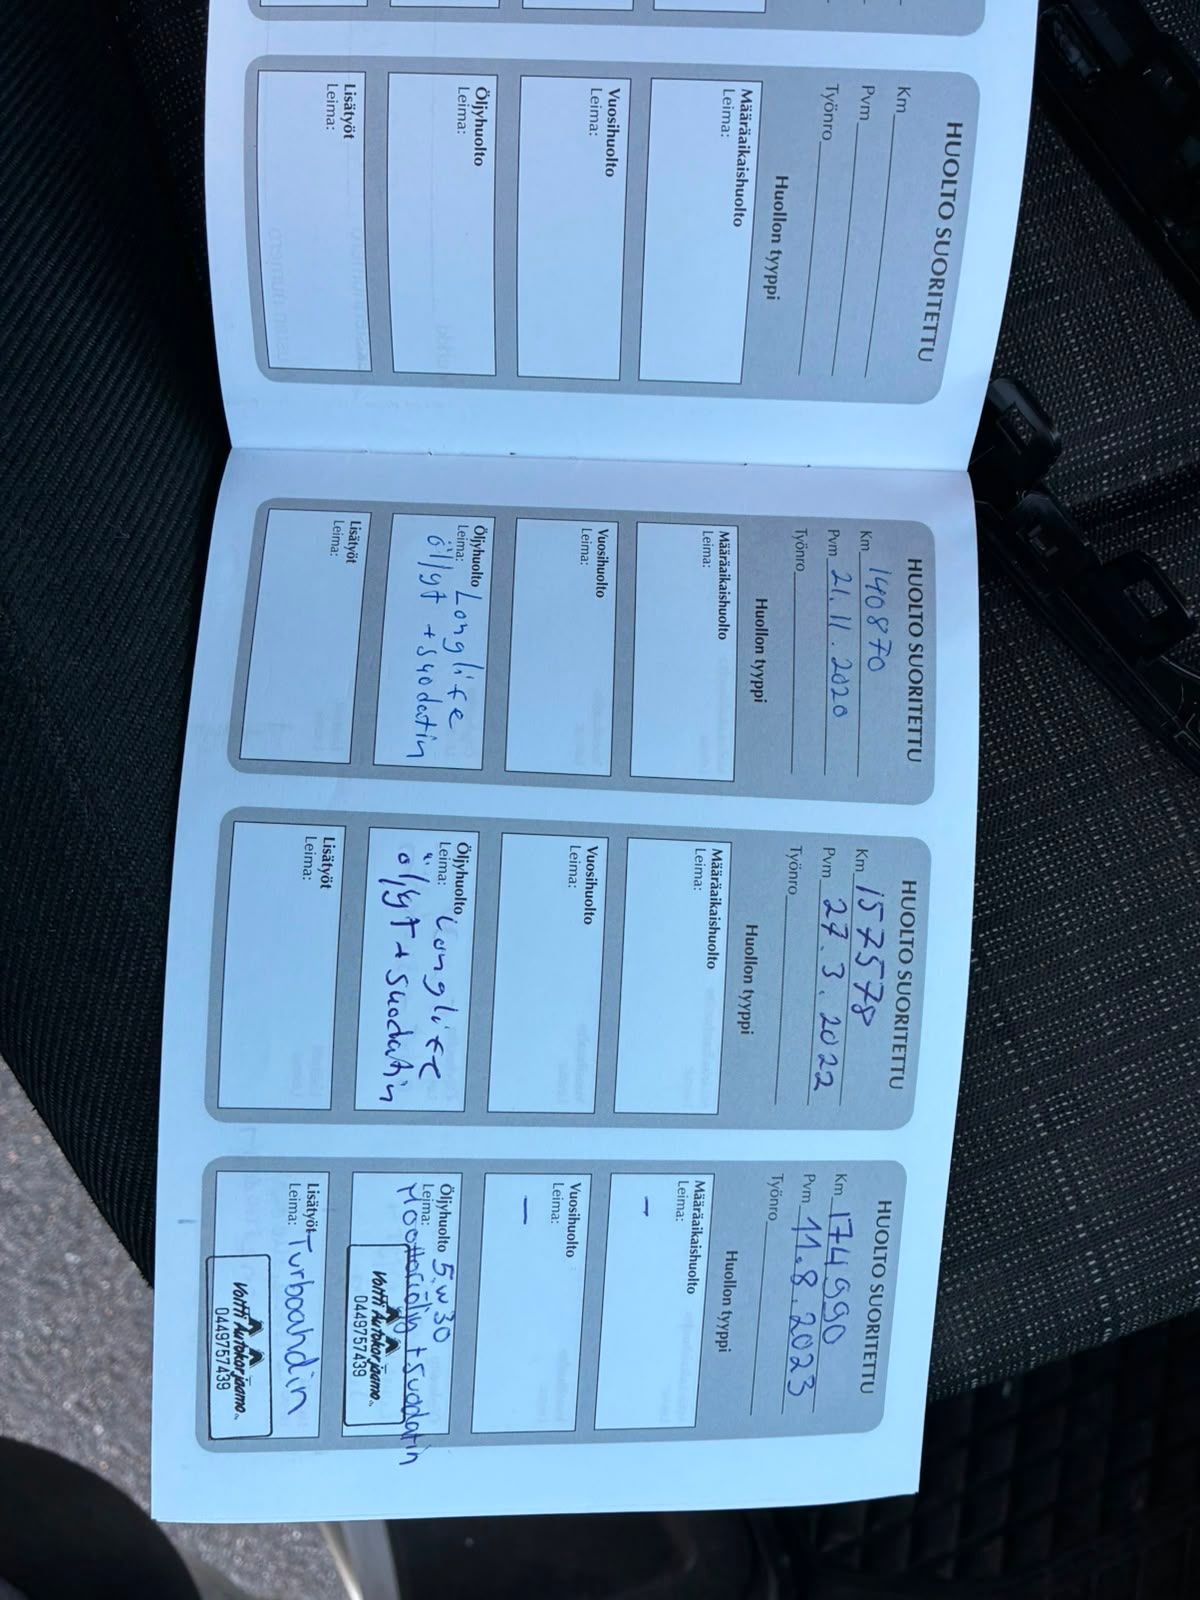 HUOLTO SUORITETTU
Km
Pvm
Työnro
Huollon tyyppi
Määräaikaishuolto
Leima:
Vuosihuolto
Leima:
Öljyhuolto
Leima:
Lisätyöt
Leima:
HUOLTO SUORITETTU
Km 140870
Pvm 21.11.2020
Työnro
Huollon tyyppi
Määräaikaishuolto
Leima:
Vuosihuolto
Leima:
Öljyhuolto Longlife
Leima: öljyt + suodatin
Lisätyöt
Leima:
HUOLTO SUORITETTU
Km 157578
Pvm 27.3.2022
Työnro
Huollon tyyppi
Määräaikaishuolto
Leima:
Vuosihuolto
Leima:
Öljyhuolto Longlife
Leima: öljyt + suodatin
Lisätyöt
Leima:
HUOLTO SUORITETTU
Km 174990
Pvm 11.8.2023
Työnro
Huollon tyyppi
Määräaikaishuolto
Leima: -
Vuosihuolto
Leima: -
Öljyhuolto 5.w30
Leima: Moottoriöljy + suodatin
Voltti Autokorjaamo
0449757439
Lisätyöt Turboahdin
Leima:
Voltti Autokorjaamo
0449757439